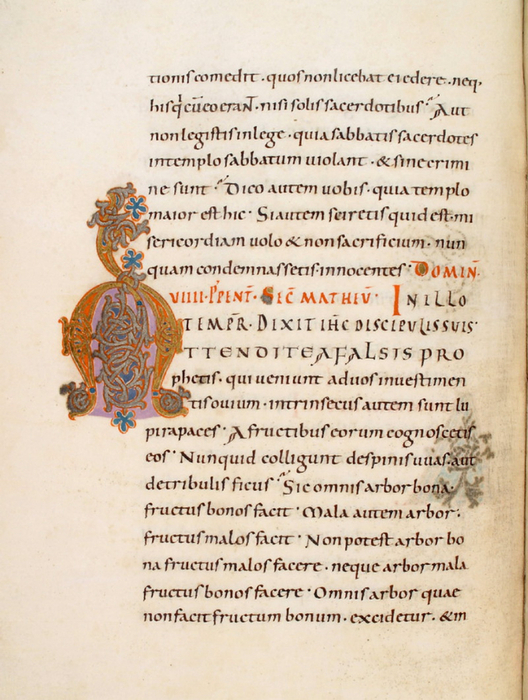 tionis comedit · quos non licebat ei edere · neq·
his q̄ cū eo eran̄ · nisi solis sacerdotibus · Aut
non legistis in lege · quia sabbatis sacerdotes
in templo sabbatum violant · & sine crimi
ne sunt · Dico autem vobis · quia templo
maior est hic · Si autem sciretis quid est · mi
sericordiam volo & non sacrificium · nun
quam condemnassetis innocentes · DOMIN̄·
VIIII · P̄ PENT̄ · SEC̄ MATHEŪ · IN ILLO
TEMPR̄ · DIXIT IH̄C DISCIPULIS SUIS·
ATTENDITE A FALSIS PRO
phetis · qui veniunt ad vos in vestimen
tis ovium · intrinsecus autem sunt lu
pi rapaces · A fructibus eorum cognoscetis
eos · Nunquid colligunt de spinis uvas · aut
de tribulis ficus · Sic omnis arbor bona ·
fructus bonos facit · Mala autem arbor ·
fructus malos facit · Non potest arbor bo
na fructus malos facere · neque arbor mala
fructus bonos facere · Omnis arbor quae
non facit fructum bonum · excidetur · & in